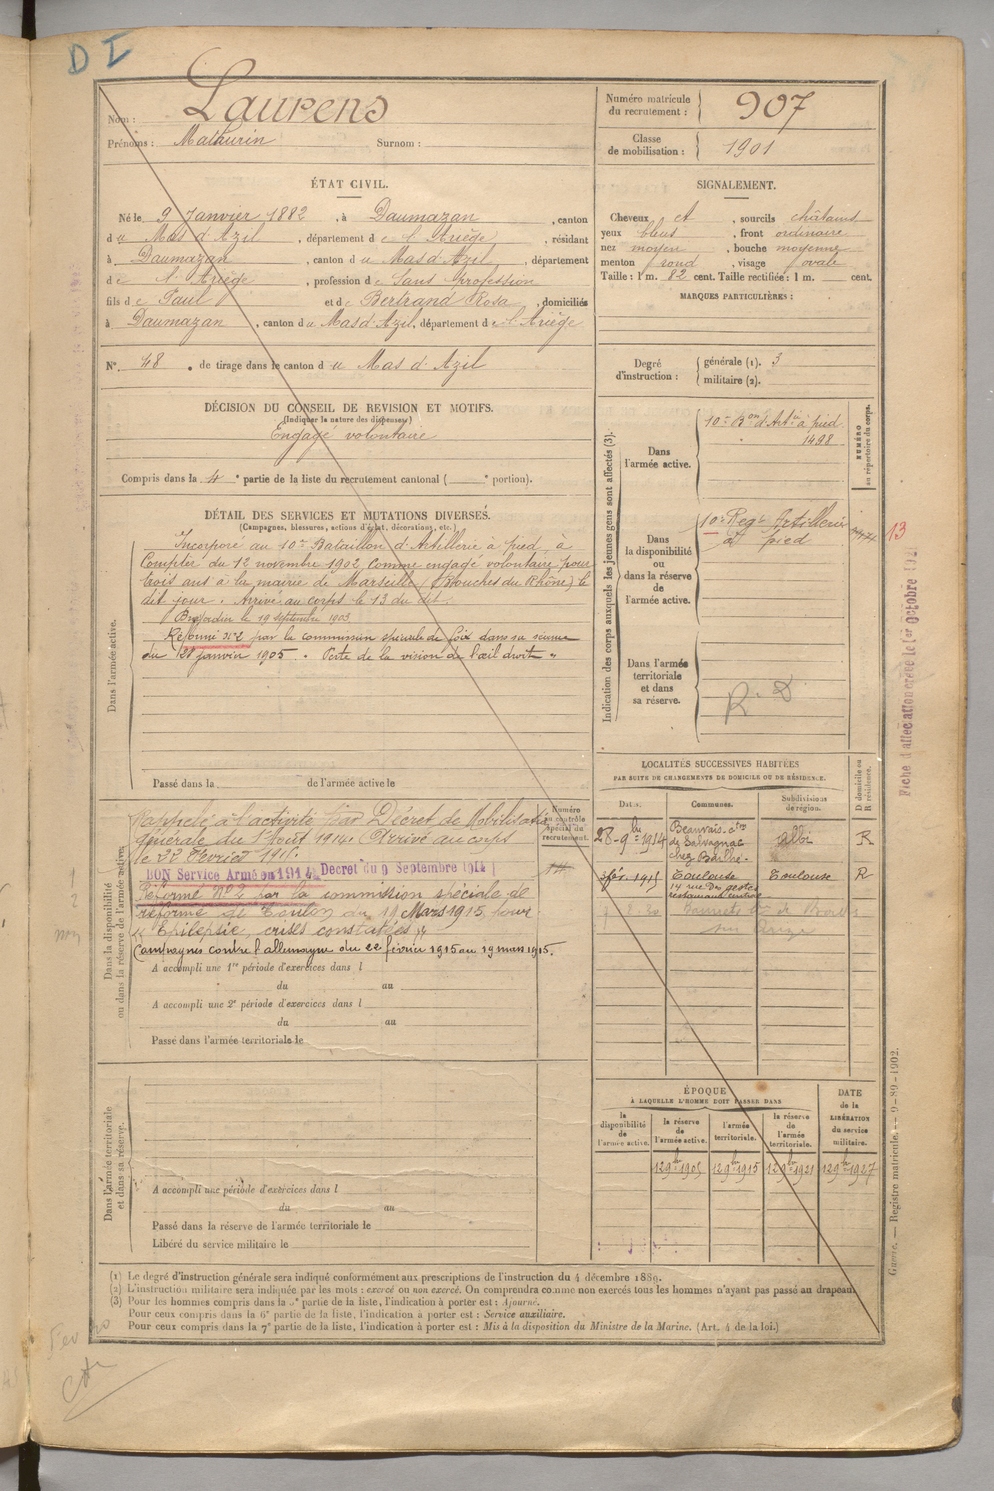 D I
Nom : Laurens
Prénoms : Mathurin Surnom :
Numéro matricule du recrutement : 907
Classe de mobilisation : 1901
ÉTAT CIVIL.
Né le 9 Janvier 1882, à Daumazan, canton
du Mas d'Azil, département de l'Ariège, résidant
à Daumazan, canton du Mas d'Azil, département
de l'Ariège, profession de Sans profession
fils de Paul et de Bertrand Rosa, domiciliés
à Daumazan, canton du Mas d'Azil, département de l'Ariège
N° 48 de tirage dans le canton du Mas d'Azil
SIGNALEMENT.
Cheveux et, sourcils châtains
yeux bleus, front ordinaire
nez moyen, bouche moyenne
menton rond, visage ovale
Taille : 1 m. 82 cent. Taille rectifiée : 1 m. cent.
MARQUES PARTICULIÈRES :
Degré d'instruction : générale (1). 3
militaire (2).
DÉCISION DU CONSEIL DE REVISION ET MOTIFS.
(Indiquer la nature des dispenses)
Engagé volontaire
Compris dans la 4e partie de la liste du recrutement cantonal ( e portion).
DÉTAIL DES SERVICES ET MUTATIONS DIVERSES.
(Campagnes, blessures, actions d'éclat, décorations, etc.)
Dans l'armée active.
Incorporé au 10e Bataillon d'Artillerie à pied, à
compter du 12 novembre 1902 comme engagé volontaire pour
trois ans à la mairie de Marseille (Bouches du Rhône) le
dit jour. Arrivé au corps le 13 du dit.
Brigadier le 19 septembre 1903
Réformé n° 2 par la commission spéciale de Foix dans sa séance
du janvier 1905. Perte de la vision de l'œil droit "
Passé dans la de l'armée active le
Indication des corps auxquels les jeunes gens sont affectés (3).
NUMÉRO au répertoire du corps.
Dans l'armée active.
10e Bon d'Artie à pied
1498
Dans la disponibilité ou dans la réserve de l'armée active.
10e Regt Artillerie
à pied
13
Dans l'armée territoriale et dans sa réserve.
R. D
Fiche d'affectation créée le 1er Octobre
LOCALITÉS SUCCESSIVES HABITÉES
PAR SUITE DE CHANGEMENTS DE DOMICILE OU DE RÉSIDENCE.
Dates. Communes. Subdivisions de région. D domicile ou R résidence.
28-9-1914 Beauvais cton de Salvagnac chez Barthe Albi R
3 fév. 1915 Toulouse 14 rue Des gestes restaurant central Toulouse R
Dans la disponibilité ou dans la réserve de l'armée active.
Numéro au contrôle spécial du recrutement.
Rappelé à l'activité par Décret de Mobilisation
générale du 1er Août 1914. Arrivé au corps
le 22 Février 1915.
BON Service Armé en 1914 Decret du 9 Septembre 1914
Réformé N° 2 par la commission spéciale de
réforme de Toulon du 19 Mars 1915 pour
" Epilepsie, crises constatées "
Campagnes contre l'allemagne du 22 février 1915 au 19 mars 1915.
A accompli une 1re période d'exercices dans l
du au
A accompli une 2e période d'exercices dans l
du au
Passé dans l'armée territoriale le
Dans l'armée territoriale et dans sa réserve.
A accompli une période d'exercices dans l
du au
Passé dans la réserve de l'armée territoriale le
Libéré du service militaire le
ÉPOQUE
À LAQUELLE L'HOMME DOIT PASSER DANS
la disponibilité de l'armée active. la réserve de l'armée active. l'armée territoriale. la réserve de l'armée territoriale.
DATE de la LIBÉRATION du service militaire.
12 9bre 1905 12 9bre 1915 12 9bre 1921 12 9bre 1927
Registre matricule. — 9-89-1902.
(1) Le degré d'instruction générale sera indiqué conformément aux prescriptions de l'instruction du 4 décembre 1889.
(2) L'instruction militaire sera indiquée par les mots : exercé ou non exercé. On comprendra comme non exercés tous les hommes n'ayant pas passé au drapeau.
(3) Pour les hommes compris dans la 5e partie de la liste, l'indication à porter est : Ajourné.
Pour ceux compris dans la 6e partie de la liste, l'indication à porter est : Service auxiliaire.
Pour ceux compris dans la 7e partie de la liste, l'indication à porter est : Mis à la disposition du Ministre de la Marine. (Art. 4 de la loi.)